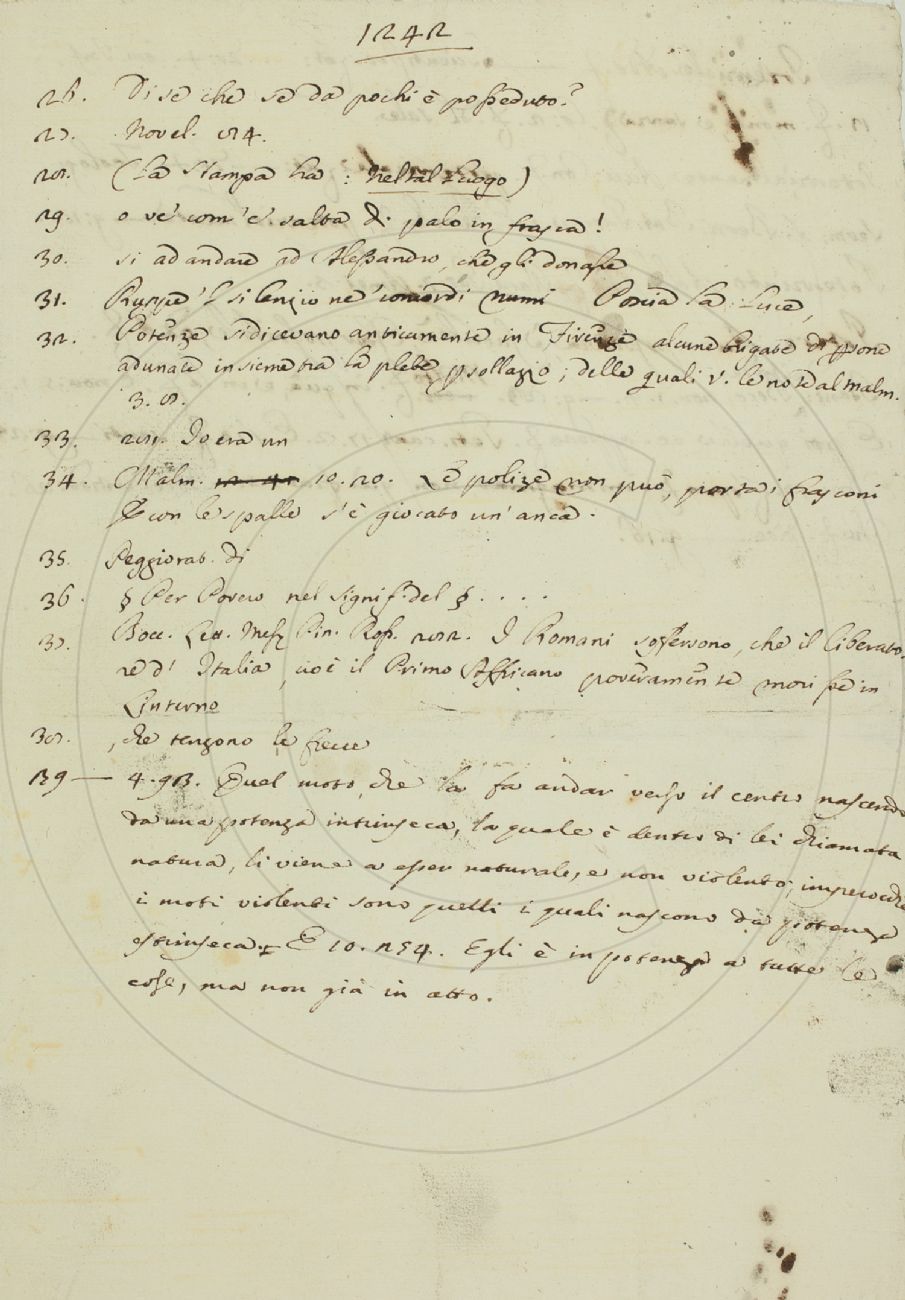 1242
26. Di se che se da pochi è posseduto?
27. Novel. 84.
28. (La Stampa ha: nel tal luogo)
29. o ve' com'e' salta di palo in frasca!
30. si ad andare ad Alessandro, che gli donasse
31. Ruppe 'l silenzio ne' concordi numi Poscia la luce,
32. Potenze si dicevano anticamente in Firenze alcune brigate di psone
adunate insieme tra la plebe p sollazio; delle quali v. le note al malm.
3. 8.
33. 281. Io era un
34. Malm. 10. 20. Le polize non può, porta i frasconi
E con le spalle s'è giocato un'anca.
35. Peggiorat. di
36. § Per Povero nel signif. del § . . . .
37. Bocc. Lett. Mess. Pin. Ross. 282. I Romani soffersono, che il liberato-
re d' Italia, cioè il Primo Affricano poveramente morisse in
Linterno
38. , che tengono le frecce
39 — 4. 93. Quel moto, che la fa andar verso il centro nascendo
da una potenza intrinseca, la quale è dentro di lei chiamata
natura, li viene a esser naturale, e non violento, imperocchè
i moti violenti sono quelli i quali nascono da potenza
estrinseca. E 10. 254. Egli è in potenza a tutte le
cose, ma non già in atto.